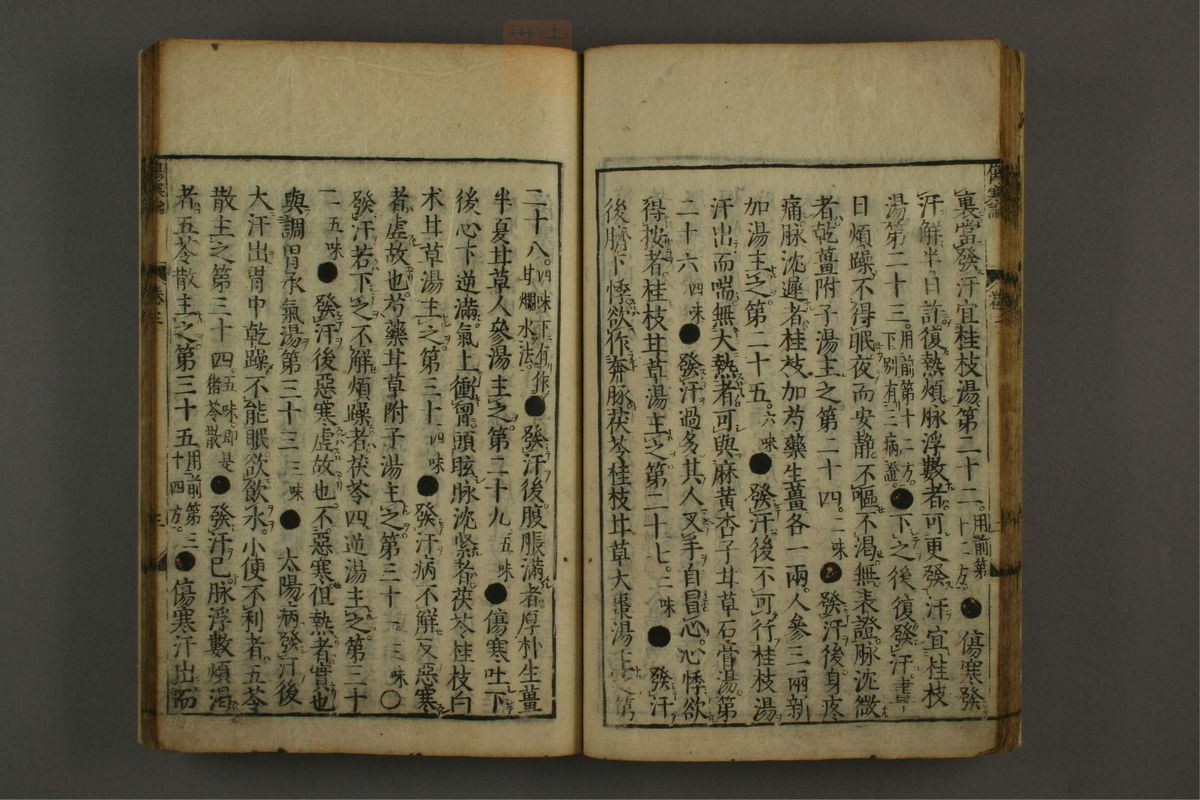 裏當發汗宜桂枝湯第二十二用前第十二方●傷寒發
汗解半日許復熱煩脉浮數者可更發汗宜桂枝
湯第二十三用前第十二方下別有三病證●下之後復發汗晝
日煩躁不得眠夜而安静不嘔不渴無表證脉沈微
者乾薑附子湯主之第二十四二味●發汗後身疼
痛脉沈遲者桂枝加芍藥生薑各一兩人參三兩新
加湯主之第二十五六味●發汗後不可行桂枝湯
汗出而喘無大熱者可與麻黄杏子甘草石膏湯第
二十六四味●發汗過多其人叉手自冒心心悸欲
得按者桂枝甘草湯主之第二十七二味●發汗
後臍下悸欲作奔豚茯苓桂枝甘草大棗湯主之第
二十八四味下有作甘爛水法●發汗後腹脹滿者厚朴生薑
半夏甘草人參湯主之第二十九五味●傷寒吐下
後心下逆滿氣上衝胷頭眩脉沈緊者茯苓桂枝白
术甘草湯主之第三十四味●發汗病不解反惡寒
者虚故也芍藥甘草附子湯主之第三十一三味○
發汗若下之不解煩躁者茯苓四逆湯主之第三十
二五味●發汗後惡寒虚故也不惡寒但熱者實也
與調胃承氣湯第三十三三味●太陽病發汗後
大汗出胃中乾躁不能眠欲飲水小便不利者五苓
散主之第三十四五味即是猪苓散●發汗已脉浮數煩渴
者五苓散主之第三十五用前第三十四方●傷寒汗出而
傷寒論
卷二